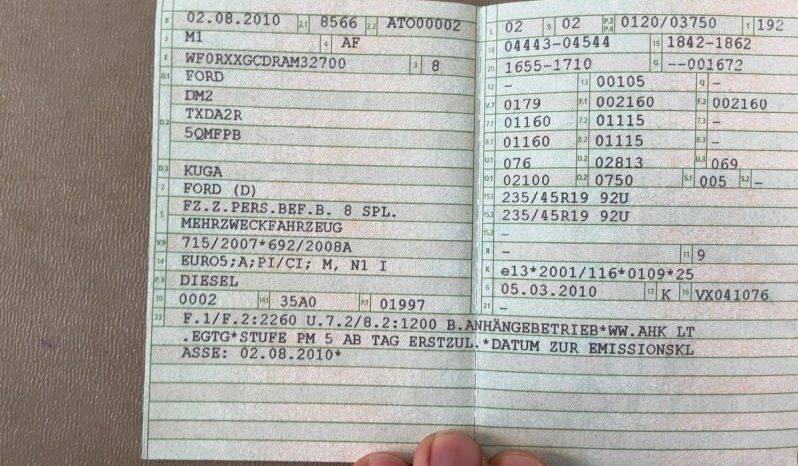 B 02.08.2010 2.1 8566 2.2 ATO00002
J M1 4 AF
E WF0RXXGCDRAM32700 3 8
D.1 FORD
DM2
D.2 TXDA2R
5QMFPB
D.3 KUGA
2 FORD (D)
5 FZ.Z.PERS.BEF.B. 8 SPL.
MEHRZWECKFAHRZEUG
V.9 715/2007*692/2008A
14 EURO5;A;PI/CI; M, N1 I
P.3 DIESEL
10 0002 14.1 35A0 P.1 01997
22 F.1/F.2:2260 U.7.2/8.2:1200 B.ANHÄNGEBETRIEB*WW.AHK LT
.EGTG*STUFE PM 5 AB TAG ERSTZUL.*DATUM ZUR EMISSIONSKL
ASSE: 02.08.2010*
L 02 9 02 P.2 P.4 0120/03750 T 192
18 04443-04544 19 1842-1862
20 1655-1710 G --001672
12 - 13 00105 Q -
V.7 0179 F.1 002160 F.2 002160
7.1 01160 7.2 01115 7.3 -
8.1 01160 8.2 01115 8.3 -
U.1 076 U.2 02813 U.3 069
O.1 02100 O.2 0750 S.1 005 S.2 -
15.1 235/45R19 92U
15.2 235/45R19 92U
15.3 -
R - 11 9
K e13*2001/116*0109*25
6 05.03.2010 17 K 16 VX041076
21 -